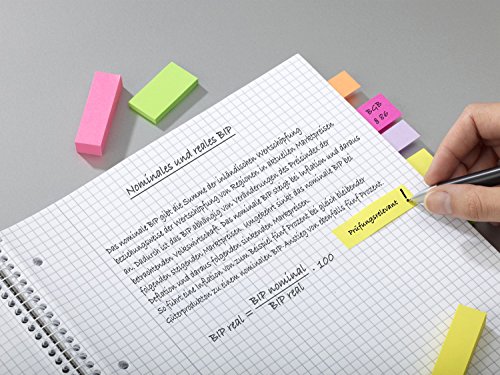 BGB
§ 86
Nominales und reales BIP
Das nominale BIP gibt die Summe der inländischen Wertschöpfung
beziehungsweise der Wertschöpfung von Regionen in aktuellen Marktpreisen
an. Dadurch ist das BIP abhängig von Veränderungen des Preisinder der
betrachtenden Volkswirtschaft. Das nominale BIP steigt bei Inflation und daraus
folgenden steigenden Marktpreisen. Umgekehrt sinkt das nominale BIP bei
Deflation und daraus folgenden sinkenden Marktpreisen.
So führt eine Inflation von zum Beispiel fünf Prozent bei gleich bleibender
Güterproduktion zu einem nominalen BIP Anstieg von ebenfalls fünf Prozent.
Prüfungsrelevant !
BIP real = BIP nominal / BIP real · 100